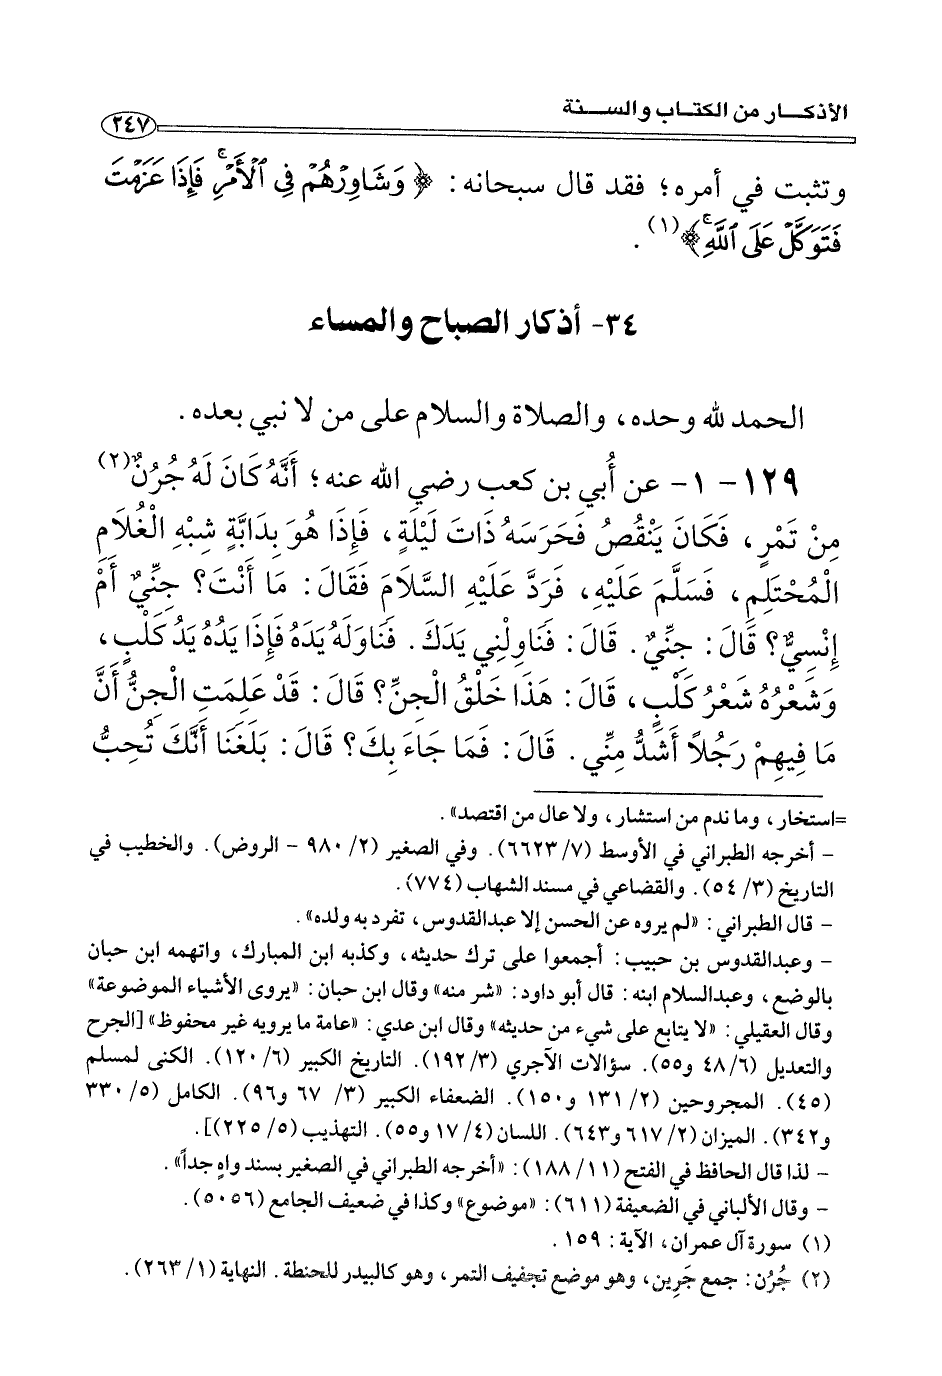 الأذكـــار من الكتـاب والســـنة
٢٤٧
وتثبت في أمره؛ فقد قال سبحانه: ﴿ وَشَاوِرْهُمْ فِى ٱلْأَمْرِ فَإِذَا عَزَمْتَ
فَتَوَكَّلْ عَلَى ٱللَّهِ ﴾(١) .
٣٤- أذكار الصباح والمساء
الحمد لله وحده، والصلاة والسلام على من لا نبي بعده .
١٢٩ - ١- عن أُبي بن كعب رضي الله عنه؛ أَنَّهُ كَانَ لَهُ جُرُنٌ(٢)
مِنْ تَمْرٍ، فَكَانَ يَنْقُصُ فَحَرَسَهُ ذَاتَ لَيْلَةٍ، فَإِذَا هُوَ بِدَابَّةٍ شِبْهِ الْغُلَامِ
الْمُحْتَلِمِ، فَسَلَّمَ عَلَيْهِ، فَرَدَّ عَلَيْهِ السَّلَامَ فَقَالَ: مَا أَنْتَ؟ جِنِّيٌ أَمْ
إِنْسِيٌّ؟ قَالَ: جِنِّيٌ. قَالَ: فَنَاوِلْنِي يَدَكَ. فَنَاوَلَهُ يَدَهُ فَإِذَا يَدُهُ يَدُ كَلْبٍ،
وَشَعْرُهُ شَعْرُ كَلْبٍ، قَالَ: هَذَا خَلْقُ الْجِنِّ؟ قَالَ: قَدْ عَلِمَتِ الْجِنُّ أَنَّ
مَا فِيهِمْ رَجُلاً أَشَدُّ مِنِّي. قَالَ: فَمَا جَاءَ بِكَ؟ قَالَ: بَلَغَنَا أَنَّكَ تُحِبُّ
=استخار، وما ندم من استشار، ولا عال من اقتصد».
- أخرجه الطبراني في الأوسط (٧/ ٦٦٢٣). وفي الصغير (٢/ ٩٨٠ - الروض). والخطيب في
التاريخ (٣/ ٥٤). والقضاعي في مسند الشهاب (٧٧٤).
- قال الطبراني: «لم يروه عن الحسن إلا عبدالقدوس، تفرد به ولده».
- وعبدالقدوس بن حبيب: أجمعوا على ترك حديثه، وكذبه ابن المبارك، واتهمه ابن حبان
بالوضع، وعبدالسلام ابنه: قال أبو داود: «شر منه» وقال ابن حبان: «يروى الأشياء الموضوعة»
وقال العقيلي: «لا يتابع على شيء من حديثه» وقال ابن عدي: «عامة ما يرويه غير محفوظ» [الجرح
والتعديل (٦/ ٤٨ و٥٥). سؤالات الآجري (٣/ ١٩٢). التاريخ الكبير (٦/ ١٢٠). الكنى لمسلم
(٤٥). المجروحين (٢/ ١٣١ و١٥٠). الضعفاء الكبير (٣/ ٦٧ و٩٦). الكامل (٥/ ٣٣٠
و٣٤٢). الميزان (٢/ ٦١٧ و٦٤٣). اللسان (٤/ ١٧ و٥٥). التهذيب (٥/ ٢٢٥)].
- لذا قال الحافظ في الفتح (١١/ ١٨٨): «أخرجه الطبراني في الصغير بسند واهٍ جداً».
- وقال الألباني في الضعيفة (٦١١): «موضوع» وكذا في ضعيف الجامع (٥٠٥٦).
(١) سورة آل عمران، الآية: ١٥٩ .
(٢) جُرُن: جمع جَرِين، وهو موضع تجفيف التمر، وهو كالبيدر للحنطة. النهاية (١/ ٢٦٣).